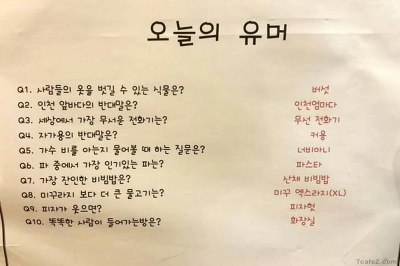 오늘의 유머
Q1. 사람들의 옷을 벗길 수 있는 식물은? 버섯
Q2. 인천 앞바다의 반대말은? 인천엄마다
Q3. 세상에서 가장 무서운 전화기는? 무선 전화기
Q4. 자가용의 반대말은? 커용
Q5. 가수 비를 아는지 물어볼 때 하는 질문은? 너비아니
Q6. 파 중에서 가장 인기있는 파는? 파스타
Q7. 가장 잔인한 비빔밥은? 산채 비빔밥
Q8. 미꾸라지 보다 더 큰 물고기는? 미꾸 엑스라지(XL)
Q9. 피자가 웃으면? 피자헛
Q10. 똑똑한 사람이 들어가는방은? 화장실
TcafeZ.com